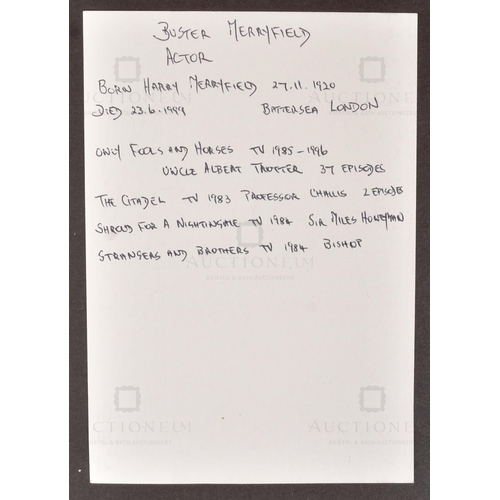 BUSTER MERRYFIELD
ACTOR
BORN HARRY MERRYFIELD 27.11.1920
DIED 23.6.1999 BATTERSEA LONDON
ONLY FOOLS AND HORSES TV 1985-1996
UNCLE ALBERT TROTTER 37 EPISODES
THE CITADEL TV 1983 PROFESSOR CHALLIS 2 EPISODES
SHROUD FOR A NIGHTINGALE TV 1984 SIR MILES HONEYMAN
STRANGERS AND BROTHERS TV 1984 BISHOP
AUCTIONEUM